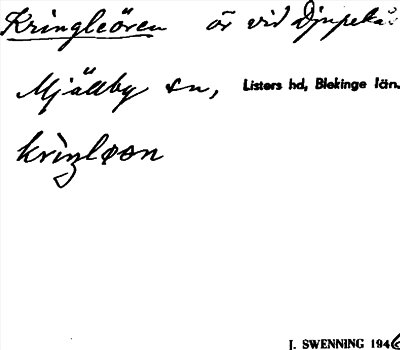 Kringleören ör vid Djupekå:
Mjällby sn, Listers hd, Blekinge län.
krìŋløən
J. SWENNING 1946